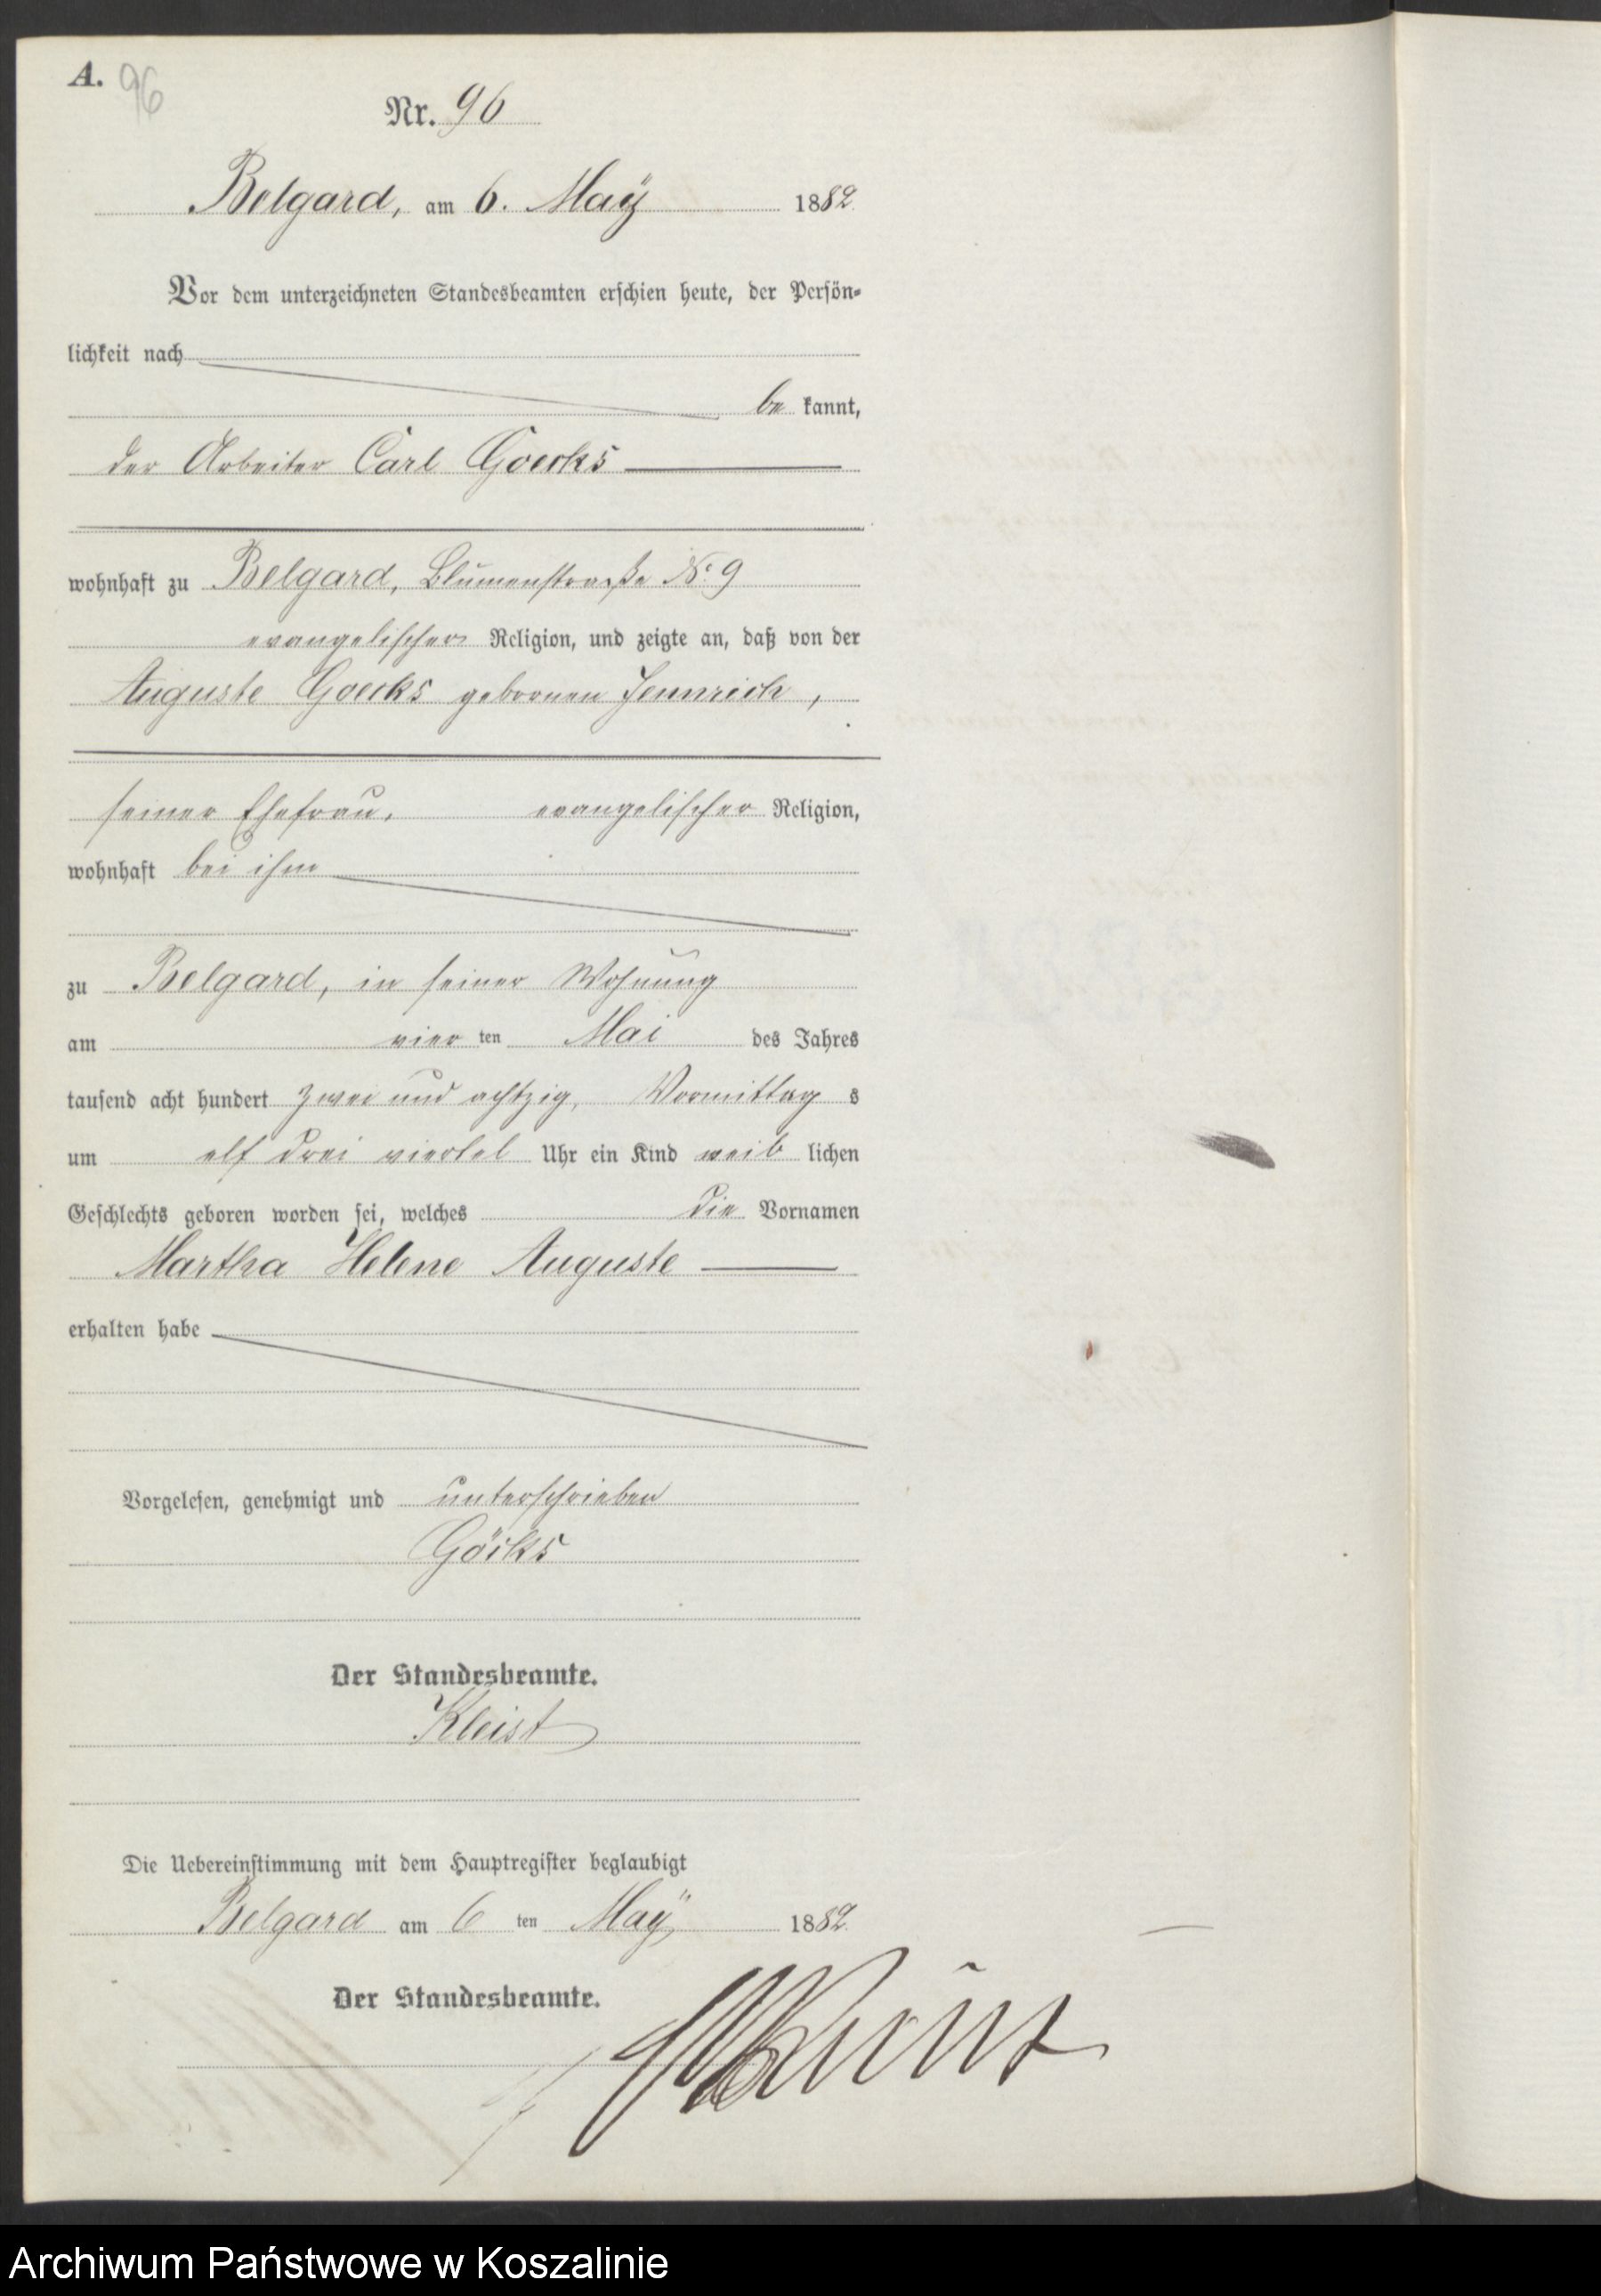 A. 96
Nr. 96
Belgard, am 6. Maÿ 1882
Vor dem unterzeichneten Standesbeamten erschien heute, der Persön-
lichkeit nach
be kannt,
der Arbeiter Carl Goecks
wohnhaft zu Belgard, Blumenstraße No 9
evangelischer Religion, und zeigte an, daß von der
Auguste Goecks gebornen Jennrich,
seiner Ehefrau, evangelischer Religion,
wohnhaft bei ihm
zu Belgard, in seiner Wohnung
am vier ten Mai des Jahres
tausend acht hundert zwei und achtzig, Vormittag s
um elf drei viertel Uhr ein Kind weib lichen
Geschlechts geboren worden sei, welches die Vornamen
Martha Helene Auguste
erhalten habe
Vorgelesen, genehmigt und unterschrieben
Göcks
Der Standesbeamte.
Kleist
Die Uebereinstimmung mit dem Hauptregister beglaubigt
Belgard am 6 ten Maÿ 1882
Der Standesbeamte.
Archiwum Państwowe w Koszalinie